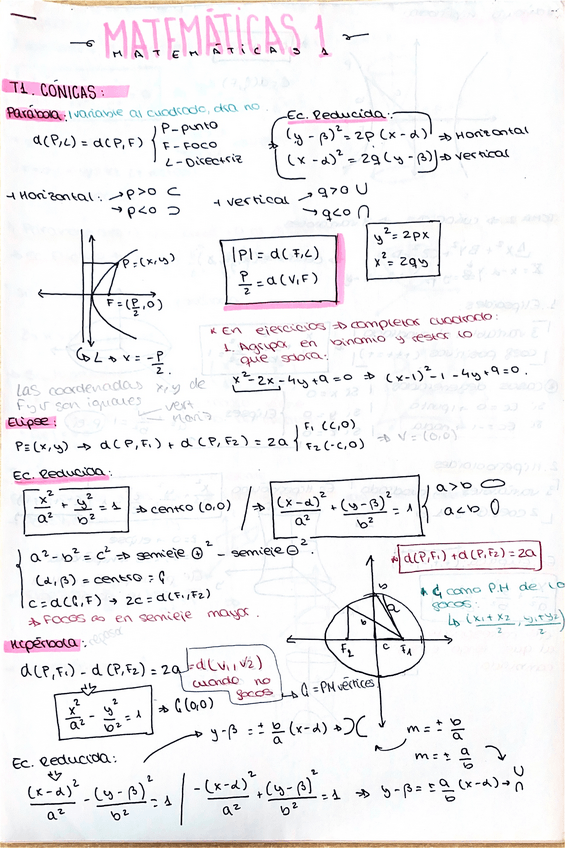 MATEMÁTICAS 1
MATEMÁTICAS 1
T1. CÓNICAS:
Parábola: Variable al cuadrado, otra no.
d(P,L) = d(P,F) { P - punto
F - Foco
L - Directriz
Ec. Reducida:
(y-β)² = 2p(x-α) ⇒ Horizontal
(x-α)² = 2q(y-β) ⇒ Vertical
+ Horizontal: → p>0 ⊂
→ p<0 ⊃
+ Vertical → q>0 ∪
→ q<0 ∩
P=(x,y)
F=(P/2, 0)
L → x = -P/2
|P| = d(F,L)
P/2 = d(V,F)
y² = 2px
x² = 2qy
* En ejercicios ⇒ completar cuadrado:
1. Agrupa en binomio y restar lo
que sobra.
x² - 2x - 4y + 9 = 0 ⇒ (x-1)² - 1 - 4y + 9 = 0.
Las coordenadas x, y de
F y V son iguales
vert
Horiz
Elipse:
P≡(x,y) → d(P,F₁) + d(P,F₂) = 2a { F₁ (c,0)
F₂ (-c,0)
⇒ V = (0,0)
Ec. Reducida:
x²/a² + y²/b² = 1 ⇒ centro (0,0) / ⇒ (x-α)²/a² + (y-β)²/b² = 1 { a>b
a<b
a² - b² = c² ⇒ semieje ⊕² - semieje ⊖².
(α, β) = centro = C
c = d(C,F) → 2c = d(F₁,F₂)
→ Focos ∞ en semieje mayor.
* d(P,F₁) + d(P,F₂) = 2a
* C como P.M de los
focos:
↳ (x₁+x₂/2, y₁+y₂/2)
b
a
b
c
F₂
F₁
Hipérbola:
d(P,F₁) - d(P,F₂) = 2a = d(V₁,V₂)
cuando no
focos
→ C = PM vértices
x²/a² - y²/b² = 1 ⇒ C(0,0)
→ y-β = ± b/a (x-α) → )(
m = ± b/a
m = ± a/b
Ec. Reducida:
(x-α)²/a² - (y-β)²/b² = 1 | -(x-α)²/a² + (y-β)²/b² = 1 ⇒ y-β = ± a/b (x-α) → ∪
∩